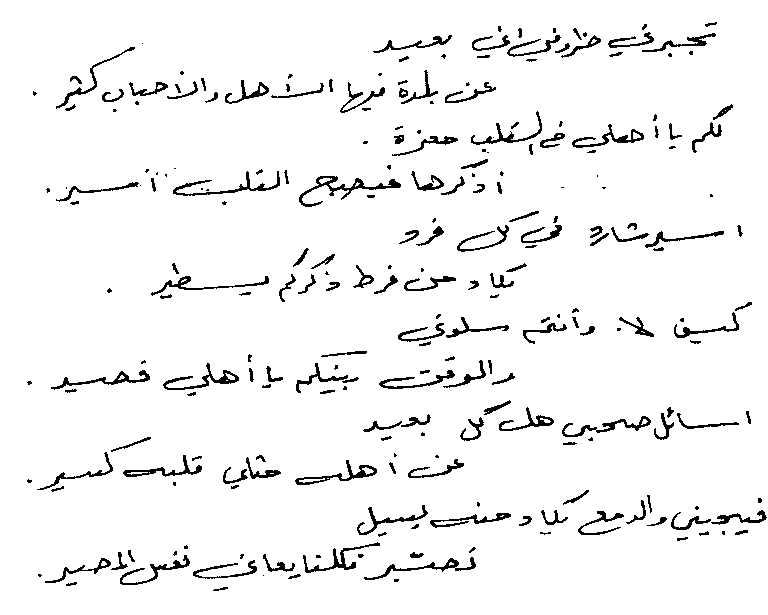 تجبرني ظروفي اني بعيد
عن بلدة فيها الأهل والأحباب كثير .
لكم يا أهلي في القلب معزة .
أذكرها فيصبح القلب أسير .
اسير شارد في كل فرد
يكاد من فرط ذكركم يسطير .
كيف لا . وأنتم سلوتي
والوقت بينكم يا أهلي قصير .
اسائل صحبي هل كل بعيد
عن أهله مثلي قلبه كسير .
فيجيبني والدمع يكاد منه يسيل
تصبر فكلنا يعاني نفس المصير .